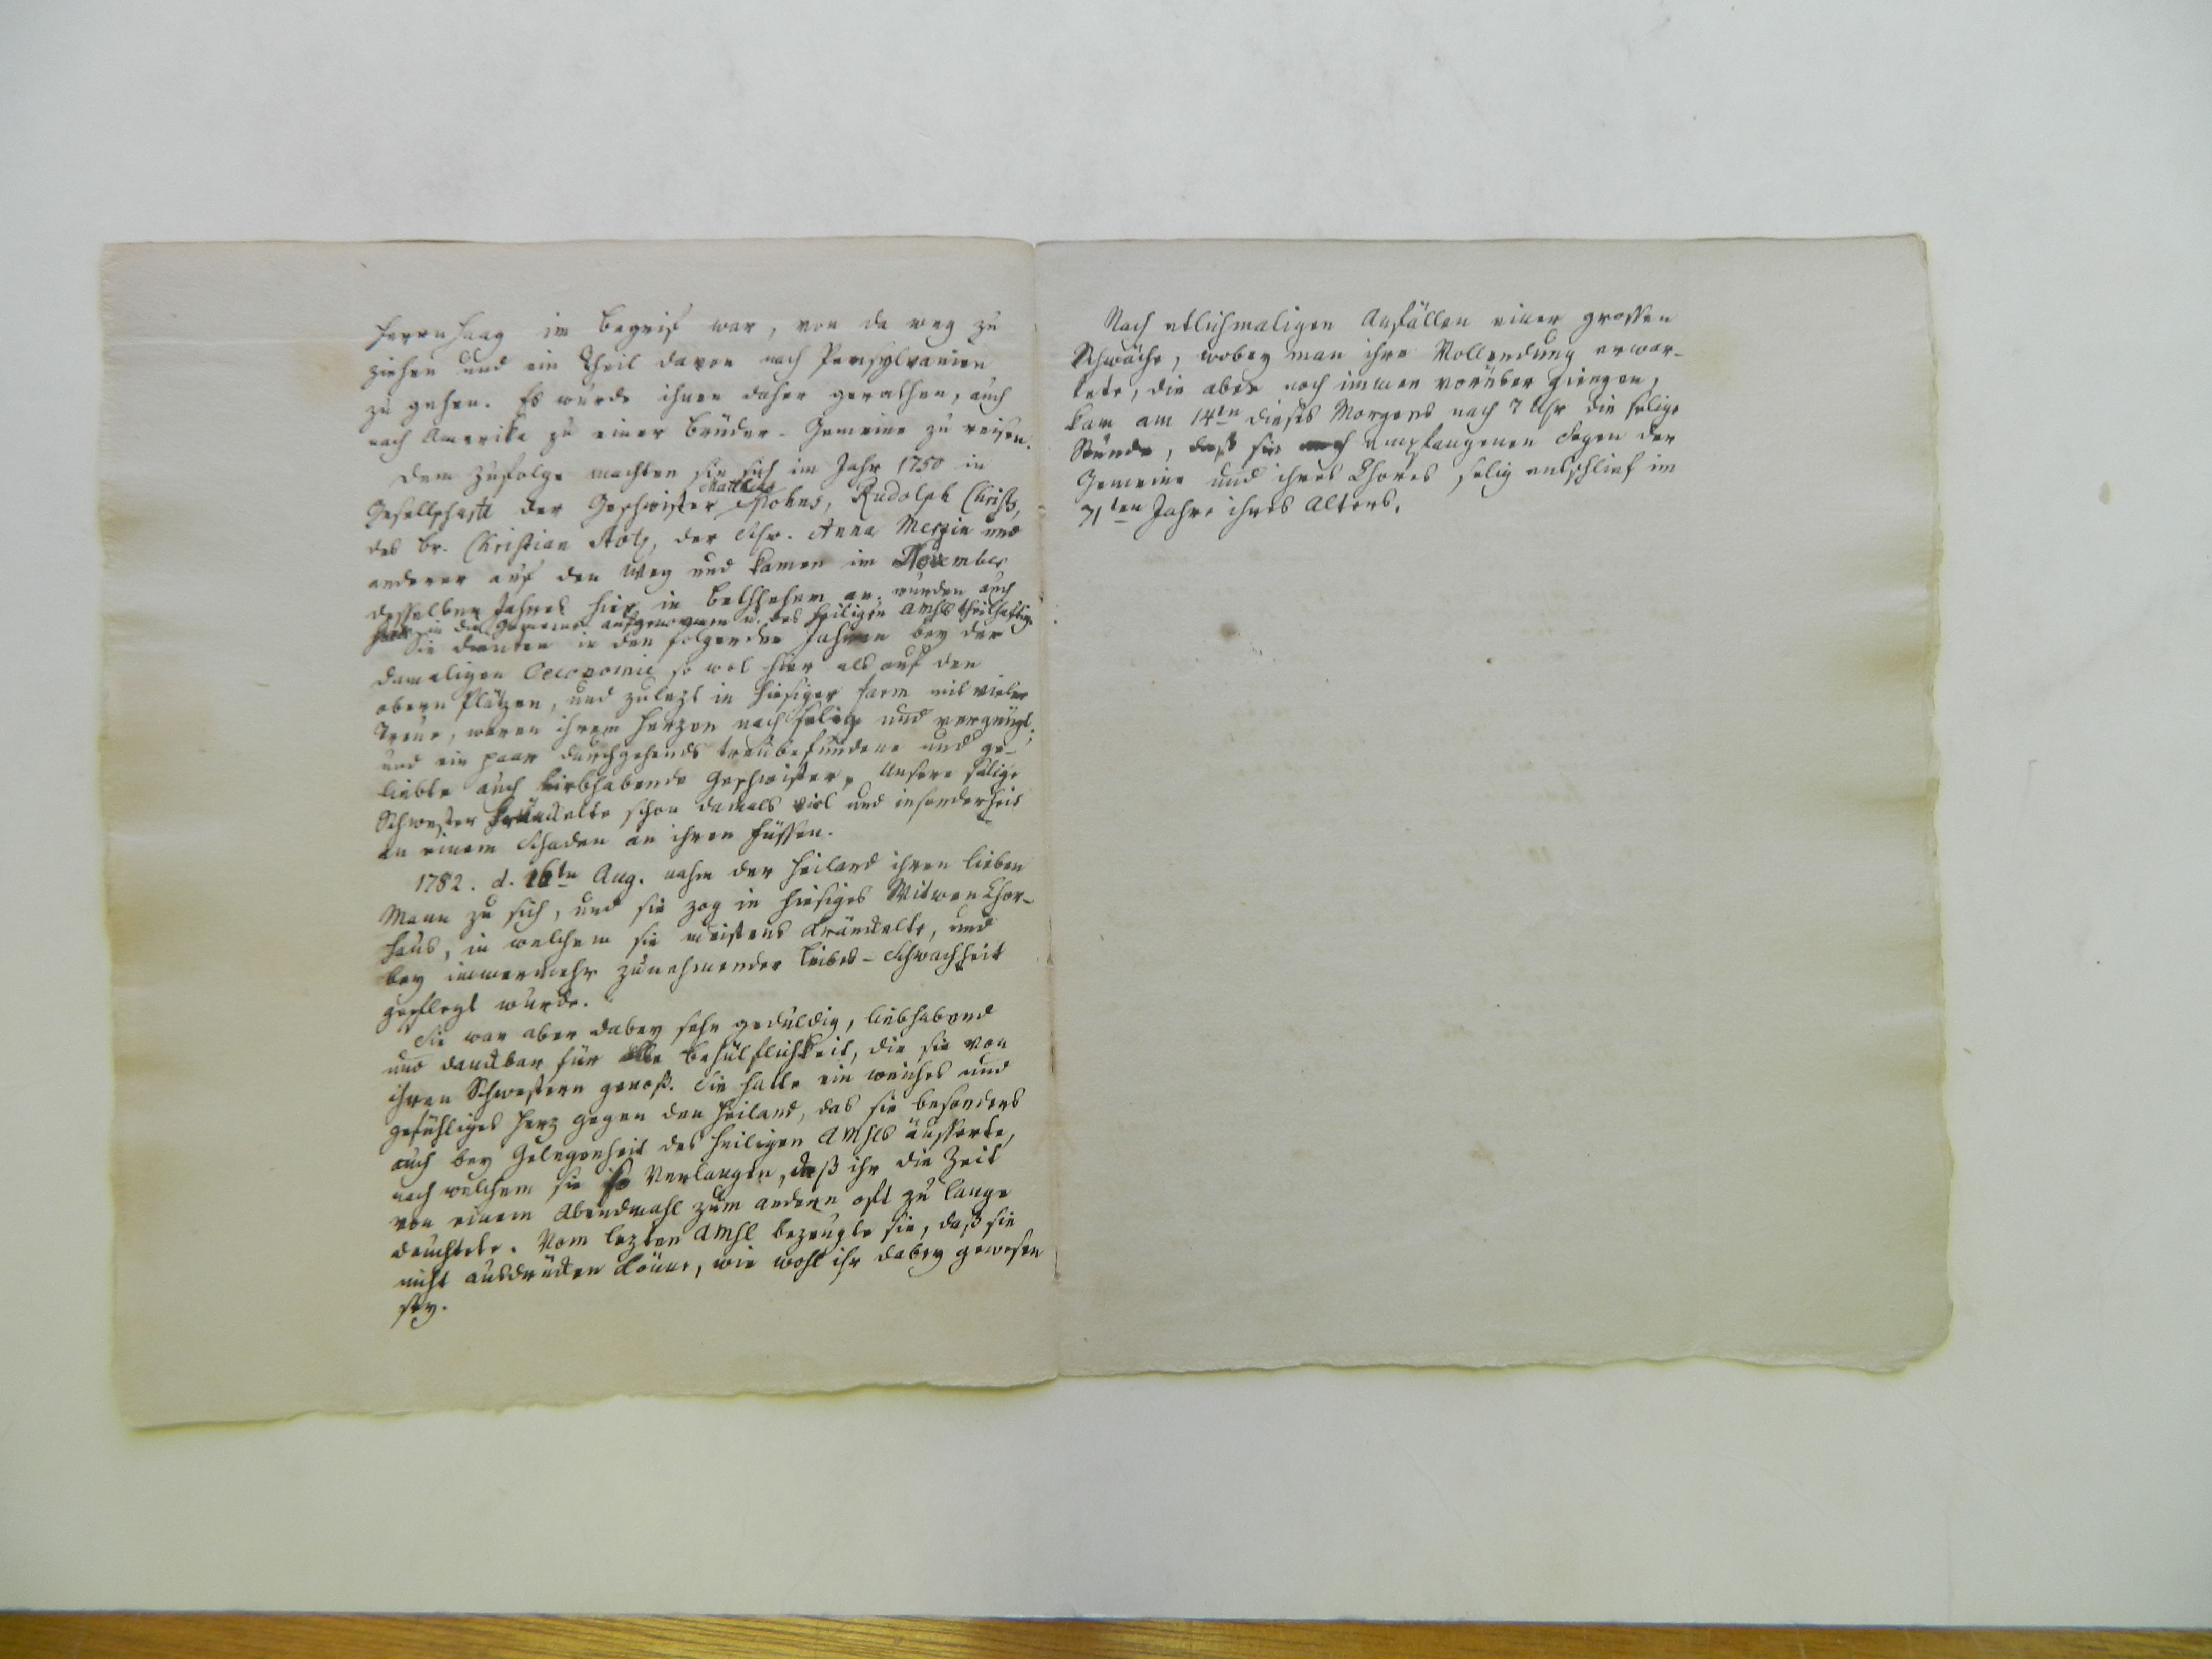 Herrnhaag im Begriff war, von da weg zu
ziehen und ein Theil davon nach Pensylvanien
zu gehen. Es wurde ihnen daher gerathen, auch
nach Amerika zu einer Brüder-Gemeine zu reisen.
Dem zufolge machten sie sich im Jahr 1750 in
Matthäus
Gesellschaft der Geschwister Rudolph Christs,
des br. Christian Stotz, der Schw. Anna Merzin und
anderer auf den Weg und kamen im November
desselben Jahres hier in Bethlehem an. wurden auch
hier in die Gemeine aufgenommen u. des heiligen Amhls theilhaftig.
Sie dienten in den folgenden Jahren bey der
damaligen Oeconomie so wol hier als auf den
obern Plätzen, und zulezt in hiesiger Farm mit vieler
Treue, waren ihrem Herzen nach selig und vergnügt;
und ein paar durchgehends treubefundene und ge-
liebte auch liebhabende Geschwister. Unsere selige
Schwester kränckelte schon damals viel und insonderheit
an einem Schaden an ihren Füssen.
1782. d. 16tn Aug. nahm der Heiland ihren lieben
Mann zu sich, und sie zog in hiesiges Witwen Chor-
haus, in welchem sie meistens kränckelte, und
bey immermehr zunehmender Leibes-Schwachheit
gepflegt wurde.
Sie war aber dabey sehr geduldig, liebhabend
und danckbar für alle Behülflichkeit, die sie von
ihren Schwestern genoß. Sie hatte ein weiches und
gefühliges Herz gegen den Heiland, das sie besonders
auch bey Gelegenheit des heiligen Amhls äusserte,
nach welchem sie so Verlangte, daß ihr die Zeit
von einem Abendmahl zum andern oft zu lange
deuchtete. Vom lezten Amhl bezeugte sie, daß sie
nicht ausdrücken könne, wie wohl ihr dabey gewesen
sey.
Nach etlichmaligen Anfällen einer grossen
Schwäche, wobey man ihre Vollendung erwar-
tete, die aber noch immer vorüber giengen,
kam am 14tn dieses Morgens nach 7 Uhr die selige
Stunde, daß sie empfangenen Segen der
Gemeine und ihres Chores, selig entschlief im
71ten Jahre ihres Alters.